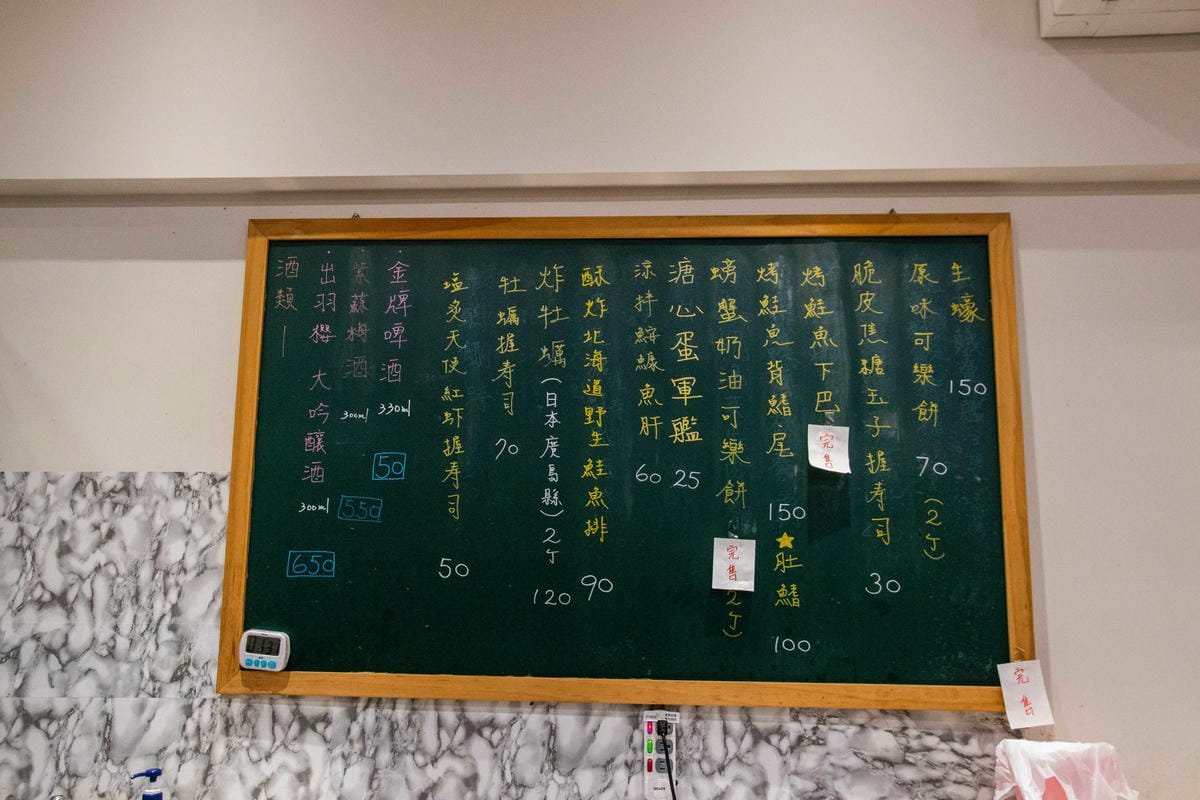 生蠔 150
原味可樂餅 70(2個)
脆皮焦糖玉子握壽司 30
烤鮭魚下巴 完售
烤鮭魚背鰭尾 150
★肚鰭 100
螃蟹奶油可樂餅 完售 2個)
溏心蛋軍艦 25
涼拌鮟鱇魚肝 60
酥炸北海道野生鮭魚排 90
炸牡蠣(日本廣島縣)2個 120
牡蠣握寿司 70
塩炙天使紅蝦握寿司 50
金牌啤酒 330ml 50
紫蘇梅酒 300ml 550
出羽櫻 大吟釀酒 300ml 650
酒類
完售